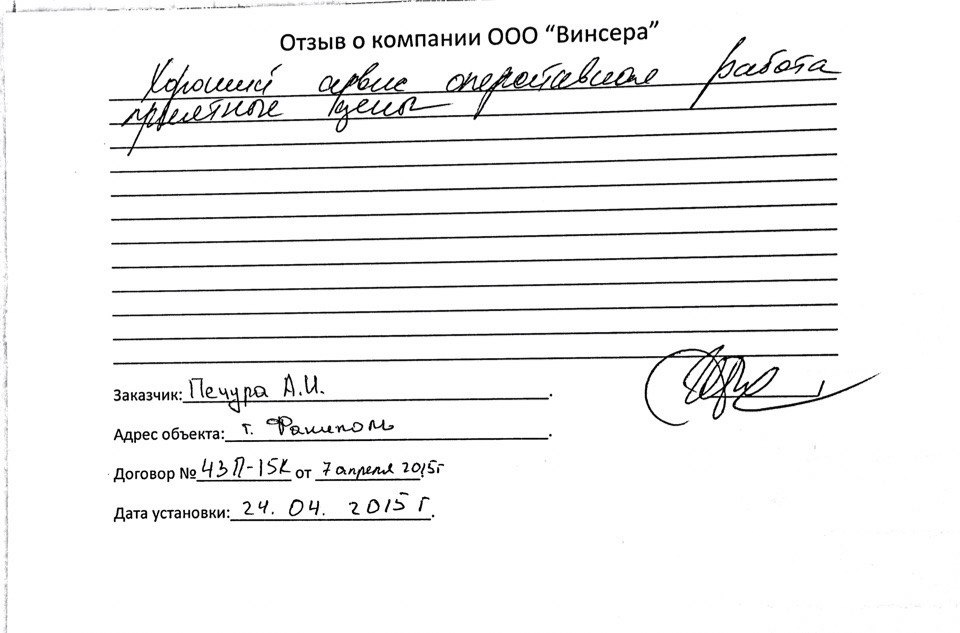 Отзыв о компании ООО “Винсера”
Хороший сервис оперативная работа
приятные цены
Заказчик: Печура А.И.
Адрес объекта: г. Фаниполь
Договор № 43П-15К от 7 апреля 2015г.
Дата установки: 24. 04. 2015 г.